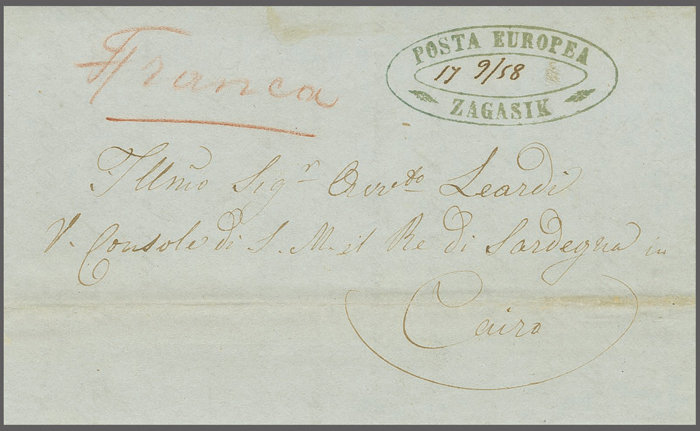 Franca
POSTA EUROPEA
17 9/58
ZAGASIK
Illmo Sigr Avvto Leardi
V. Console di S. M. il Re di Sardegna in
Cairo